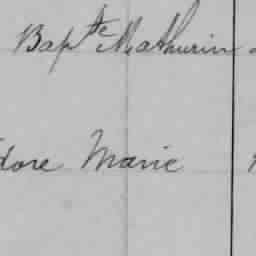 Bapte Mathurin
dore Marie